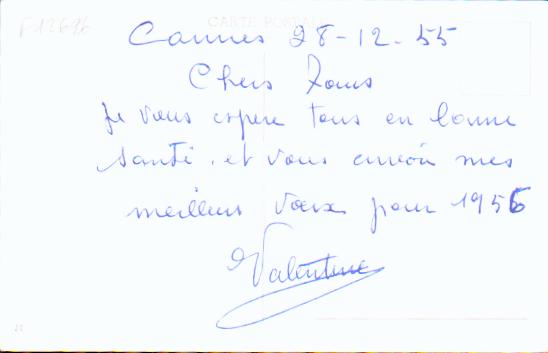 F12696
CARTE POSTALE
Cannes 28-12-55
Chers Tous
Je vous espere tous en bonne
santé. et vous envoie mes
meilleurs vœux pour 1956
Valentine